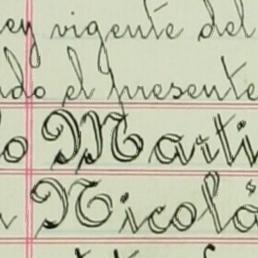 ey vigente del
do el presente
o Marti
Nicolá